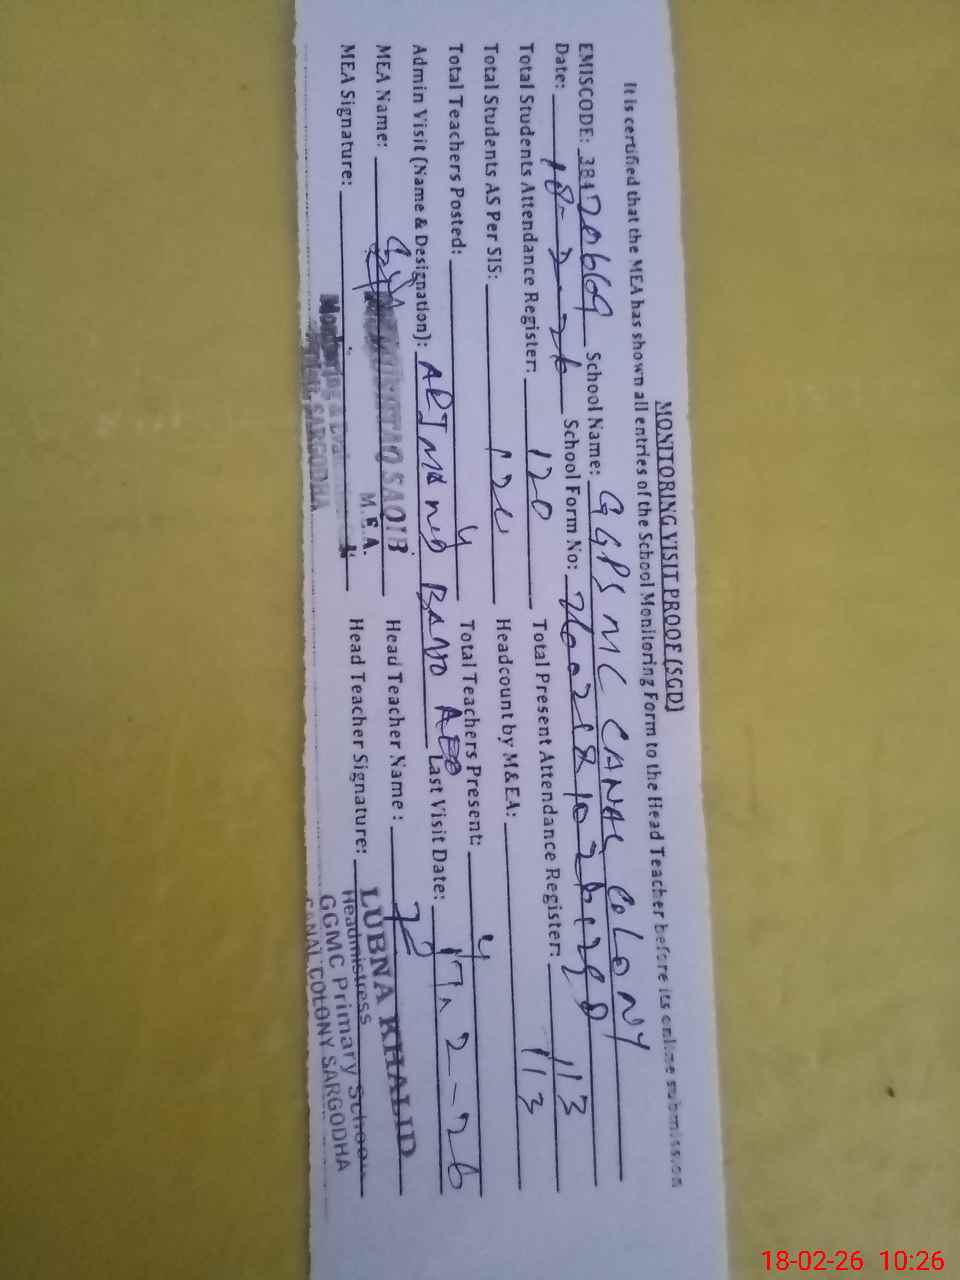 MONITORING VISIT PROOF (SGD)
It is certified that the MEA has shown all entries of the School Monitoring Form to the Head Teacher before its online submission
EMISCODE: 38420669 School Name: GGPS MC CANAL COLONY
Date: 18-2-26 School Form No:
Total Students Attendance Register: 120 Total Present Attendance Register: 113
Total Students AS Per SIS: 120 Headcount by M&EA: 113
Total Teachers Posted: 4 Total Teachers Present: 4
Admin Visit (Name & Designation): ARJMAND BANO AEO Last Visit Date: 17-2-26
MEA Name: SAQIB Head Teacher Name: LUBNA KHALID
M.E.A. Headmistress
MEA Signature: Head Teacher Signature: GGMC Primary School
Monitoring & SARGODHA CANAL COLONY SARGODHA
18-02-26 10:26